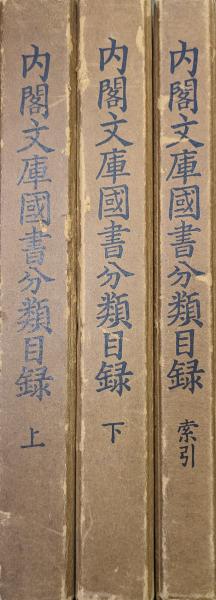 内閣文庫國書分類目録 上
内閣文庫國書分類目録 下
内閣文庫國書分類目録 索引